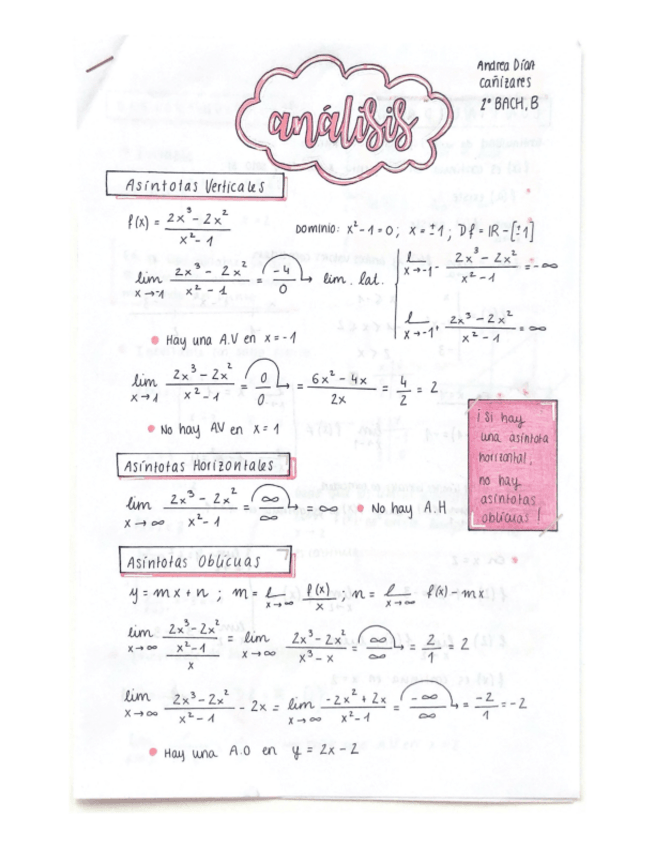 Andrea Díaz
Cañizares
2º BACH, B
análisis
Asíntotas Verticales
f(x) = (2x³ - 2x²)/(x² - 1)
DOMINIO: x² - 1 = 0 ; x = ±1 ; Df = IR - [±1]
lim x→-1 (2x³ - 2x²)/(x² - 1) = -4/0 → lim. lat.
l x→-1⁻ (2x³ - 2x²)/(x² - 1) = -∞
l x→-1⁺ (2x³ - 2x²)/(x² - 1) = ∞
• Hay una A.V en x = -1
lim x→1 (2x³ - 2x²)/(x² - 1) = 0/0 → = (6x² - 4x)/2x = 4/2 = 2
• No hay AV en x = 1
¡ Si hay
una asíntota
horizontal,
no hay
asíntotas
oblicuas !
Asíntotas Horizontales
lim x→∞ (2x³ - 2x²)/(x² - 1) = ∞/∞ → = ∞ • No hay A.H
Asíntotas Oblicuas
y = mx + n ; m = l x→∞ f(x)/x ; n = l x→∞ f(x) - mx
lim x→∞ ((2x³ - 2x²)/(x² - 1))/x = lim x→∞ (2x³ - 2x²)/(x³ - x) = ∞/∞ → = 2/1 = 2
lim x→∞ (2x³ - 2x²)/(x² - 1) - 2x = lim x→∞ (-2x² + 2x)/(x² - 1) = -∞/∞ → = -2/1 = -2
• Hay una A.O en y = 2x - 2